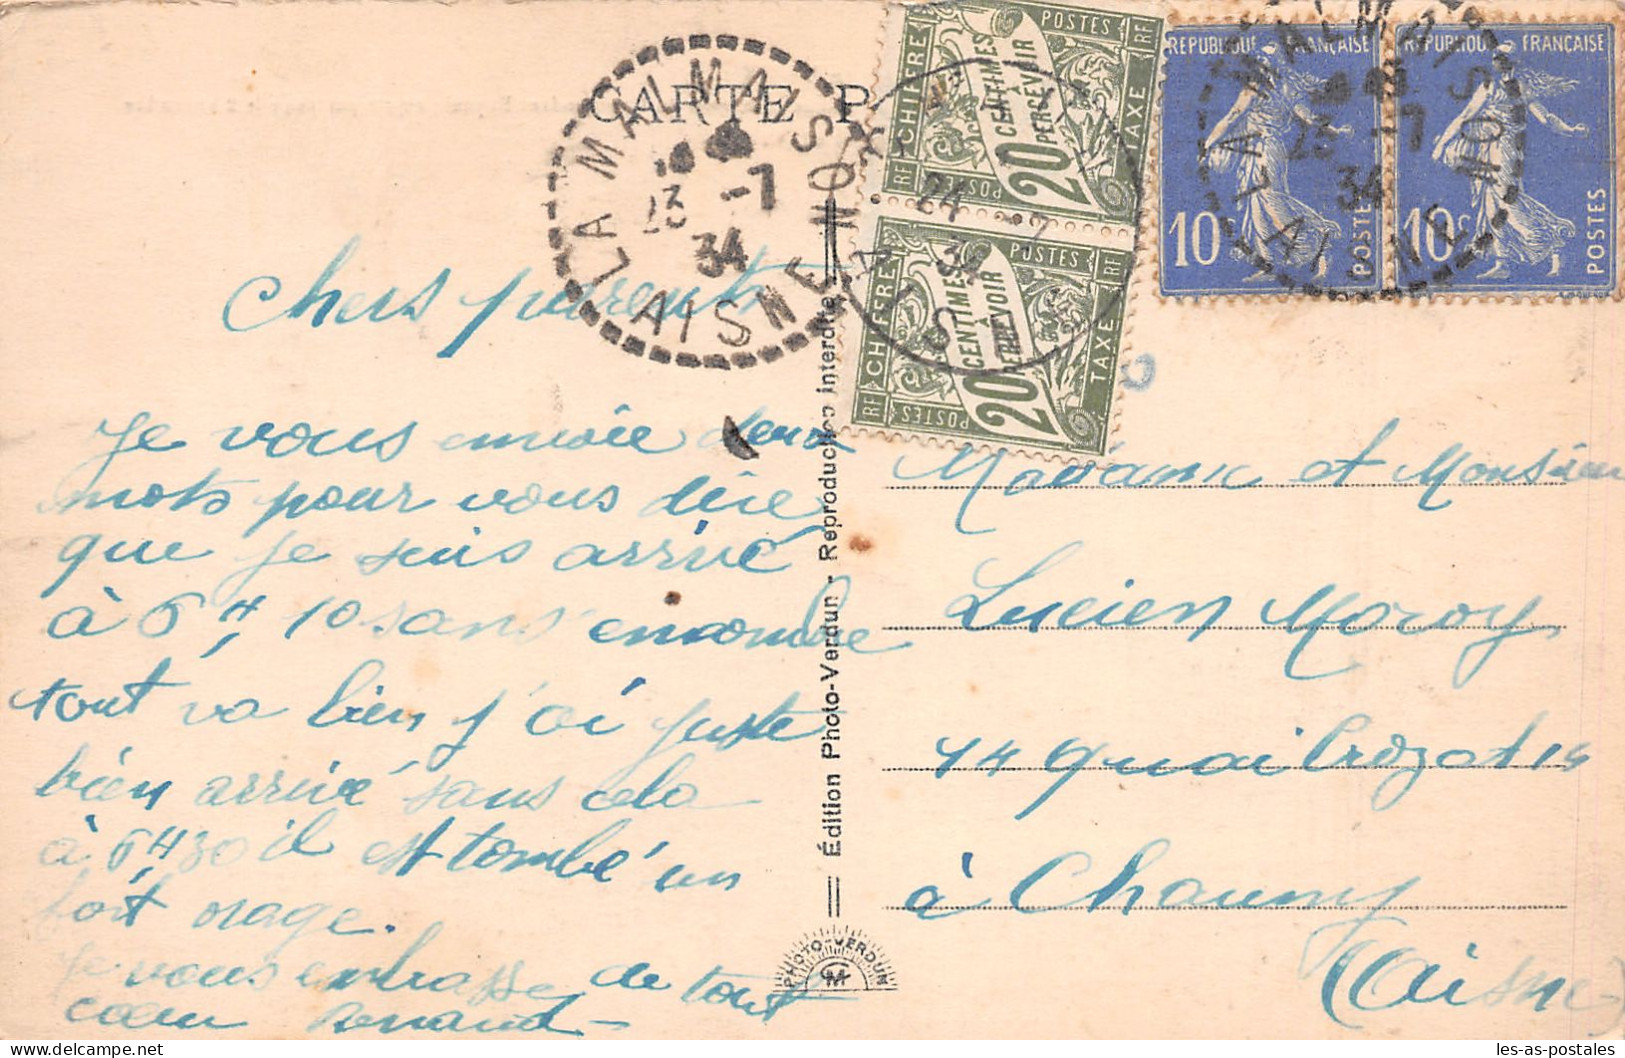 CARTE P
LA MALMAISON
23 -7
34
AISNE
POSTES RF
CHIFFRE TAXE
20 CENTIMES À PERCEVOIR
RF POSTES
24 -7
34
AISNE
POSTES RF
CHIFFRE TAXE
20 CENTIMES À PERCEVOIR
RF POSTES
REPUBLIQUE FRANÇAISE
10c POSTES
REPUBLIQUE FRANÇAISE
10c POSTES
LA MALMAISON
23 -7
34
AISNE
Chers parents
Je vous envoie deux
mots pour vous dire
que je suis arrivé
à 6H10 sans encombre
tout va bien j'ai juste
bien arrivé sans cela
à 6H30 il est tombé un
fort orage.
Je vous embrasse de tout
cœur Renaud
Édition Photo-Verdun - Reproduction interdite
PHOTO-VERDUN
CM
Madame et Monsieur
Lucien Moroy
44 quai Crozat 14
à Chauny
(Aisne)
les-as-postales